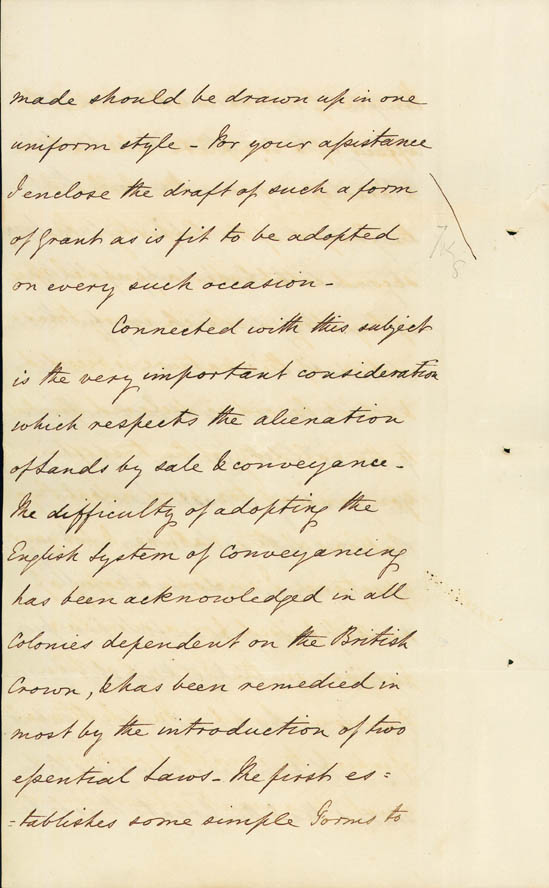 made should be drawn up in one
uniform style - For your assistance
I enclose the draft of such a form
of Grant as is fit to be adopted
on every such occasion -
Connected with this subject
is the very important consideration
which respects the alienation
of Lands by sale & conveyance -
The difficulty of adopting the
English System of Conveyancing
has been acknowledged in all
Colonies dependent on the British
Crown, & has been remedied in
most by the introduction of two
essential Laws - The first es=
=tablishes some simple Forms to